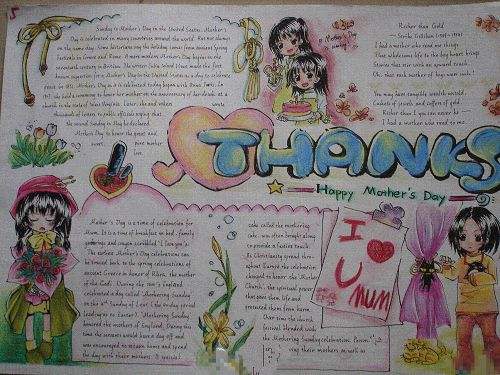 Sunday is Mother's Day in the United States. Mother's
Day is celebrated in many countries around the world. But not always
on the same day. Some historians say the holiday comes from ancient Spring
festivals in Greece and Rome. A more modern Mother's Day began in the
seventeenth century in Britain. The writer Julia Ward Howe made the first
known suggestion for a Mother's Day in the United States as a day to celebrate
peace in 1872. Mother's Day as it is celebrated today began with Anna Jarvis. In
1907, she held a ceremony to honor her mother on the anniversary of her death
church in the state of West Virginia. Later she and others wrote
thousands of letters to public officials saying that
the second Sunday in May be declared
Mother's Day to honor the great and
sweet, pure mother
love.
Mother's Day is
coming!
Richer than Gold
I had a mother who read me things
That wholesome life to the boy heart brings
Stories that stir with an upward touch
Oh, that each mother of boys were such!
You may have tangible wealth untold,
Caskets of jewels and coffers of gold
Richer than I you can never be
I had a mother who read to me.
THANKS
Happy Mother's Day
Mother's Day is a time of celebration for
Mum. It is a time of breakfast in bed, family
gatherings and crayon scribbled "I love you's.
The earliest Mother's Day celebrations can
be traced back to the spring celebrations of
ancient Greece in honor of Rhea, the mother
of the Gods. During the 1600's England
celebrated a day called "Mothering Sunday"
on the 4th Sunday of Lent (the 40 day period
leading up to Easter). "Mothering Sunday"
honored the mothers of England. During this
time the servants would have a day off and
was encouraged to return home and spend
the day with their mothers. A special
cake called the mothering
cake, was often brought along
to provide a festive touch.
As Christianity spread throu-
ghout Europe the celebration
changed to honor the "Mother
Church", the spiritual power
that gave them life and
protected them from harm.
Over time the church
festival blended with
the Mothering Sunday celebration. People
ving their mothers as well as
I
U
mum